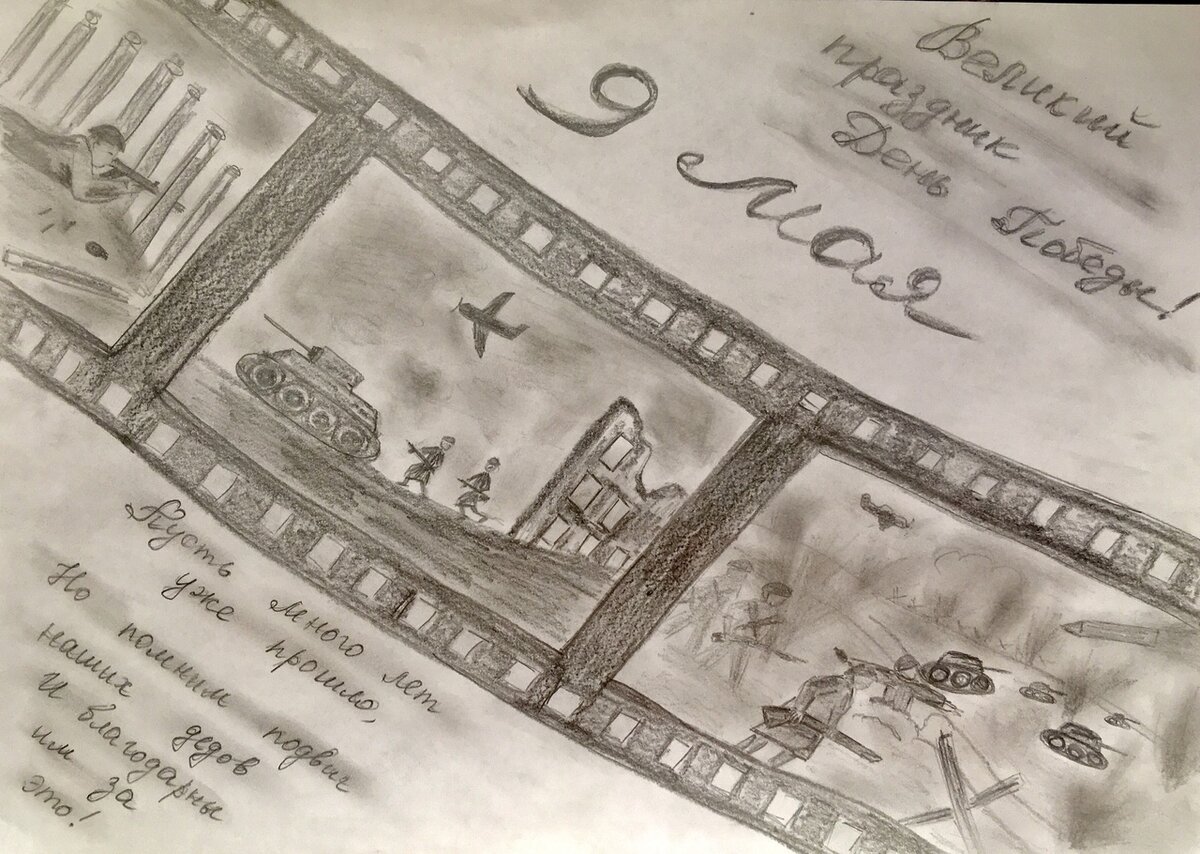 9 Мая
Великий
праздник
День Победы!
Пусть много лет
уже прошло,
Но помним подвиг
наших дедов
И благодарны
им за
это!